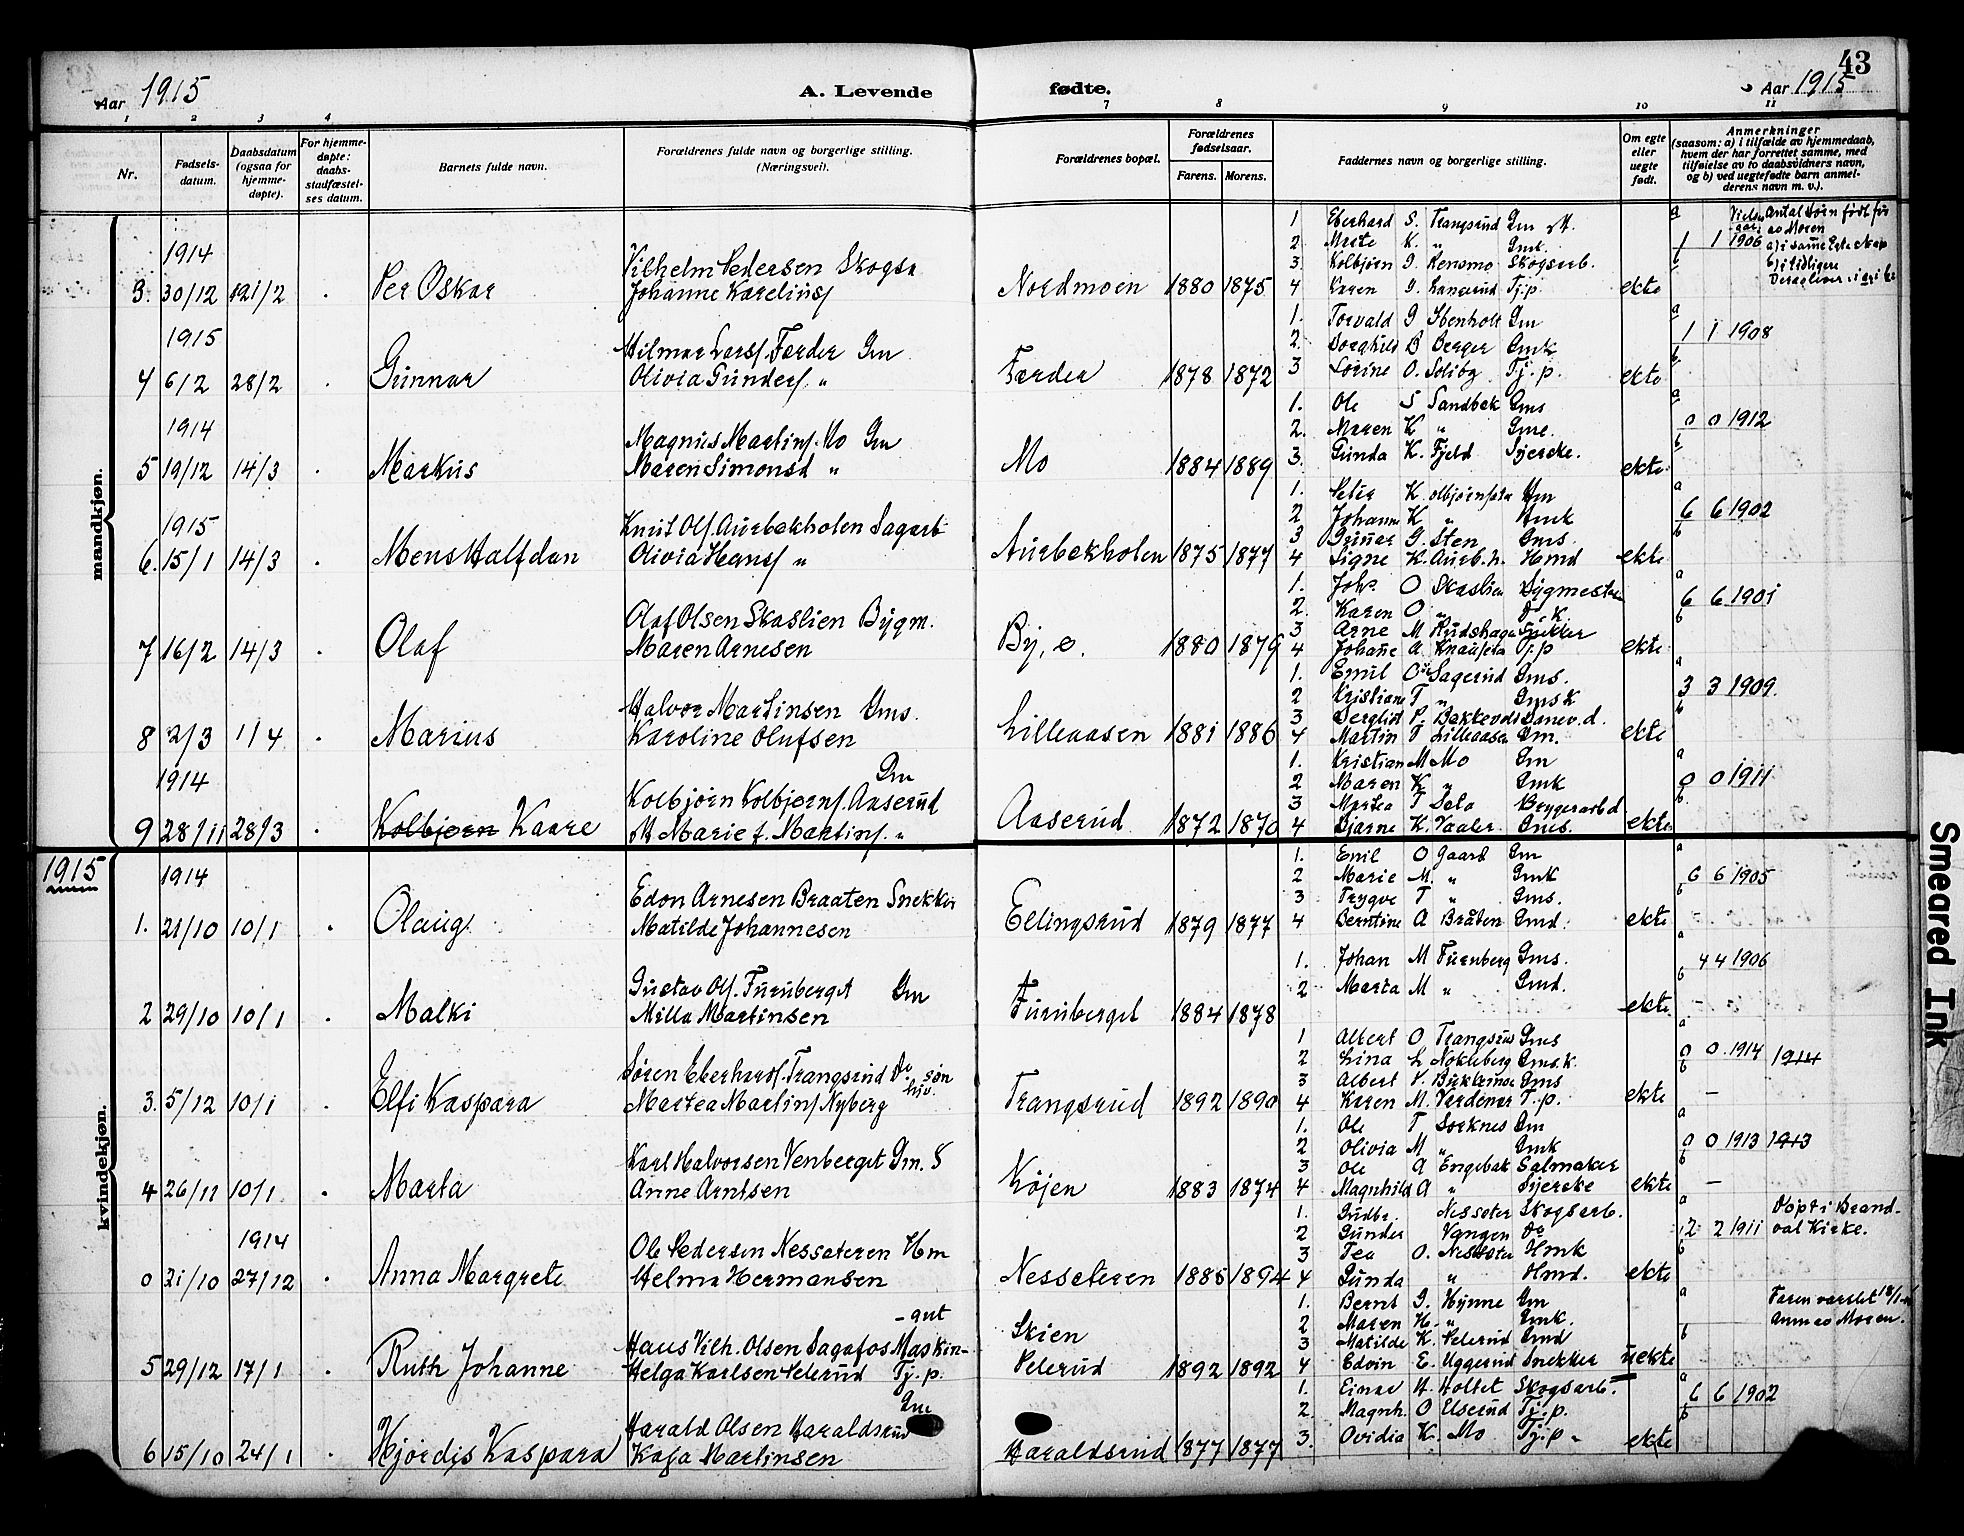 43
Aar 1915
A. Levende fødte.
Aar 1915
1 2 3 4 7 8 9 10 11
Nr.
Fødsels-
datum.
Daabsdatum
(ogsaa for
hjemme-
døpte).
For hjemme-
døpte:
daabs-
stadfæstel-
ses datum.
Barnets fulde navn.
Forældrenes fulde navn og borgerlige stilling.
(Næringsvei).
Forældrenes bopæl.
Forældrenes
fødselsaar.
Farens. Morens.
Faddernes navn og borgerlige stilling.
Om egte
eller
uegte
født.
Anmerkninger
(saasom: a) i tilfælde av hjemmedaab,
hvem der har forrettet samme, med
tilføielse av to daabsvidners navn,
og b) ved uegtefødte barn anmel-
derens navn m. v.).
mandkjøn.
1914
3. 30/12 21/2 Per Oskar
Vilhelm Pedersen Skogsa
Johanne Karelius
Nordmoen 1880 1875
1 Eberhard S. Trangsrud Gm
2 Marte K. " Gmk.
3. Kolbjørn J. Rensmo Skogsarb.
4 Karen Tj.p.
ekte
a 1 1 1906
Antal børn født før
av Moren
a) i samme Egteskap
b) i tidligere
1915
4 6/2 28/2 Gunnar
Hilmar Lars. Færder Gm
Olivia Gunders. "
Færder 1878 1872
1. Torvald J Ibenholt Gm
2. Borghild B Berger Gmk
3 Lorine O. Solibg Tj.p.
ekte
1 1 1908
1914
5 19/12 14/3 Markus
Magnus Martins. Mo Gm
Maren Simonsd "
Mo 1884 1889
1. Ole S Sandbek Gms
2. Maren K " Gme.
3. Gunda K. Fjeld Syerske.
ekte
0 0 1912
1915
6. 15/1 14/3 Mens Halfdan
Knut Ols. Aurbekholen Sagarb
Olivia Hans "
Aurbekholen 1875 1877
1. Peter K. Hm
2 Johanne K " Hmk
3 Gunar G. Sten Gms.
4 Signe K. Aurb.h. Hmd
ekte
6 6 1902
7 16/2 14/3 Olaf
Olaf Olsen Skaslien Bygm.
Maren Arnesen
By, ø. 1880 1879
1. Johs. O Skaslien Bygmester
2. Karen O " k.
3 Arne M Rudshage Snekker
4 Johane A Tj.p
ekte
6 6 1901
8 2/3 1/4 Marius
Halvor Martinsen Gms.
Karoline Olufsen
Lilleaasen 1881 1886
1. Emil O Sagerud Gms.
2 Kristiane T " Gms K
3 Berglist P. Banev. d.
4 Martin T Lilleaasen Gm.
ekte
3 3 1909.
1914
9 28/11 28/3 Kolbjørn Kaare
Gm
Kolbjørn Kolbjørns. Aaserud
M Marie f. Martins. "
Aaserud 1872 1870
1. Kristian M Mo Gm
2 Maren K " Gmk
3 Martea T Selo Bryggerarb d
4 Bjarne K. Vaaler Gms.
ekte
0 0 1911
1915
kvindekjøn.
1914
1. 21/10 10/1 Olaug.
Edon Arnesen Braaten Snekker
Matilde Johannesen
Ellingsrud 1879 1877
1. Emil O Gaard Gm
2 Marie M. " Gmk
3 Trygve T " Gms.
4 Berntine A Bråten Gmd.
ekte
6 6 1905
2 29/10 10/1 Malki
Gustav Ols. Furuberget Gm
Milla Martinsen
Furuberget 1884 1878
1. Johan M Furuberg Gms.
2 Marta M " Gmd.
ekte
4 4 1906
3. 5/12 10/1 Elfi Kaspara
Søren Eberhards. Trangsrud Do søn
Martea Martins Nyberg
Trangsrud 1892 1890
1 Albert O Trangsrud Gms
2 Lina L Nokleberg Gms.k.
3 Albert P. Gms
4 Karen M. Verdenar T.p.
ekte
0 0. 1914 1914
4 26/11 10/1 Marta
Karl Halvorsen Venberget Gm. S
Anne Arntsen
Køjen 1883 1874
1. Ole T Sorknes Gm
2 Olivia M " Gmk
3 Ole A Engebak Salmaker
4 Magnhild A " Syerske
ekte
0 0 1913 1913
1914
0 21/10 27/12 Anna Margrete
Ole Pedersen Nesseteren Hm
Helma Hermansen
Nesseteren 1885 1894
1. Gudbr. Nesseter Skogsarb.
2 Gunder Vangen Do
3 Tea O. Nesseter Hmk
4 Gunda " Hmd.
ekte
2 2 1911
Døpt i Brand-
val Kirke.
5 29/12 17/1 Ruth Johanne
-gut
Hans Vilh. Olsen Sagafos Maskin-
Helga Karlsen Pelerud Tj.p.
Skien
Pelerud 1892 1892
1. Bernt G. Hynne Gm
2 Maren H. " Gmk.
3 Matilde K. Pelerud Gmd
4 Edvin E. Uggerud Snekker
uekte
Faren varslet 18/1
Anm av Moren.
6 15/10 24/1 Hjørdis Kaspara
Gm
Harald Olsen Haraldsrud
Kaja Martinsen
Haraldsrud 1877 1877
1. Einar H. Holtet Skogsarb.
2. Magnh. O Elserud Tj.p.
3. Ovidia K. Mo Tj.p.
ekte
6 6 1902
Smeared Ink